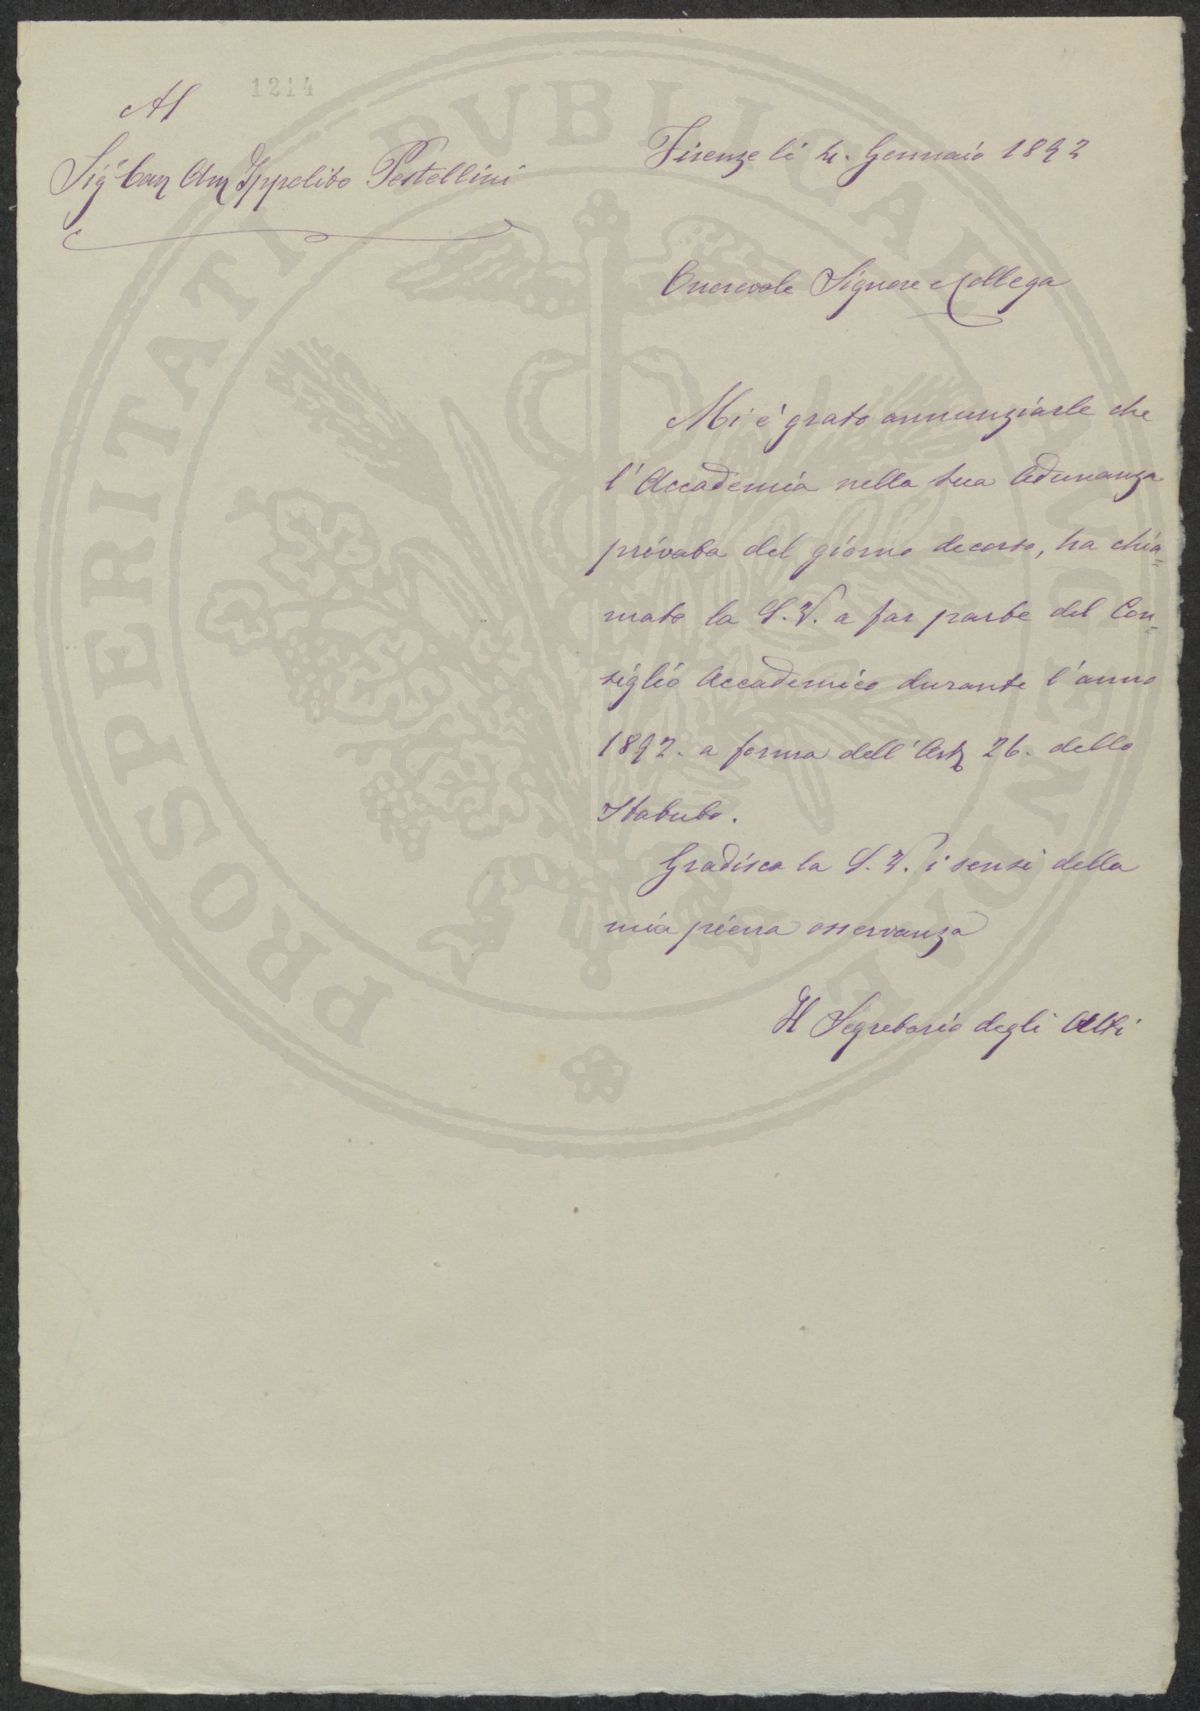 1214
Al
Sigr Cav Avv Ippolito Pestellini
Firenze li 4. Gennaio 1892
Onorevole Signore e Collega
Mi è grato annunziarle che
l'Accademia nella sua Adunanza
privata del giorno decorso, ha chia=
mato la S.V. a far parte del Con=
siglio Accademico durante l'anno
1892. a forma dell'Art 26. dello
Statuto.
Gradisca la S.V. i sensi della
mia piena osservanza
Il Segretario degli Atti
PROSPERITATI PVBLICAE